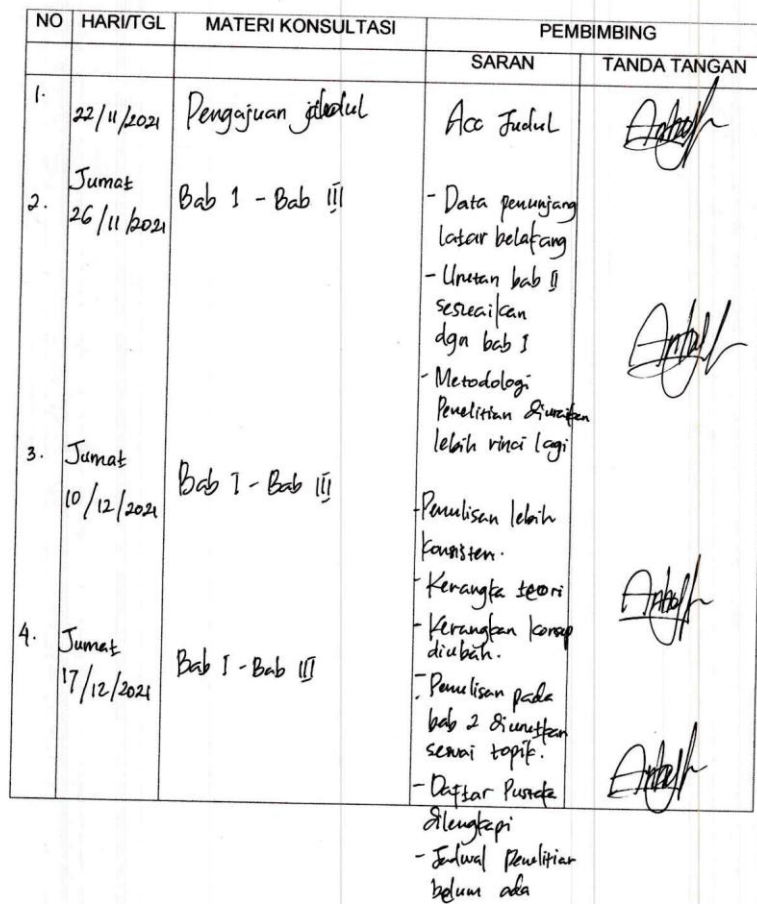 NO HARI/TGL MATERI KONSULTASI PEMBIMBING
SARAN TANDA TANGAN
1. 22/11/2021 Pengajuan judul Acc Judul
2. Jumat
26/11/2021 Bab 1 - Bab III
- Data penunjang
latar belakang
- Urutan bab II
sesuaikan
dgn bab I
- Metodologi
Penelitian diuraikan
lebih rinci lagi
3. Jumat
10/12/2021 Bab I - Bab III
- Penulisan lebih
konsisten.
- Kerangka teori
- Kerangkan konsep
diubah.
4. Jumat
17/12/2021 Bab I - Bab III
- Penulisan pada
bab 2 diurutkan
sesuai topik.
- Daftar Pustaka
dilengkapi
- Jadwal Penelitian
belum ada